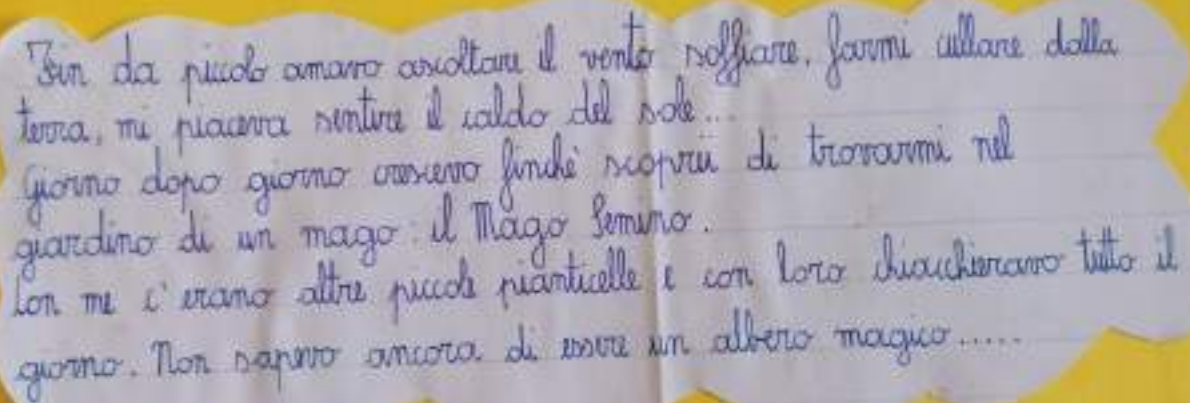 Fin da piccolo amavo ascoltare il vento soffiare, farmi cullare dalla
terra, mi piaceva sentire il caldo del sole...
Giorno dopo giorno crescevo finchè scoprii di trovarmi nel
giardino di un mago: il Mago Semino.
Con me c'erano altre piccole pianticelle e con loro chiacchieravo tutto il
giorno. Non sapevo ancora di essere un albero magico.....